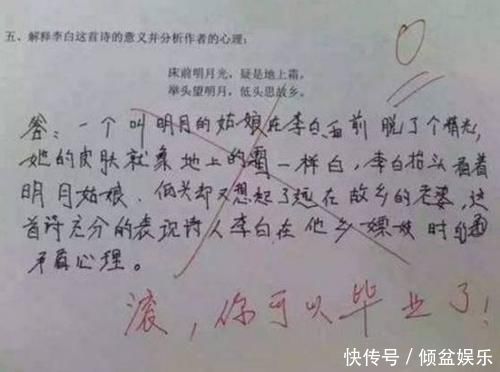 五、解释李白这首诗的意义并分析作者的心理:
0
床前明月光,疑是地上霜,
举头望明月,低头思故乡。
答:一个叫明月的姑娘在李白面前脱了个精光,
她的皮肤就象地上的霜一样白,李白抬头看着
明月姑娘,低头却又想起了远在故乡的老婆,这
首诗充分的表现诗人李白在他乡嫖妓时的
矛盾心理。
滚,你可以毕业了!
快传号/倾盆娱乐